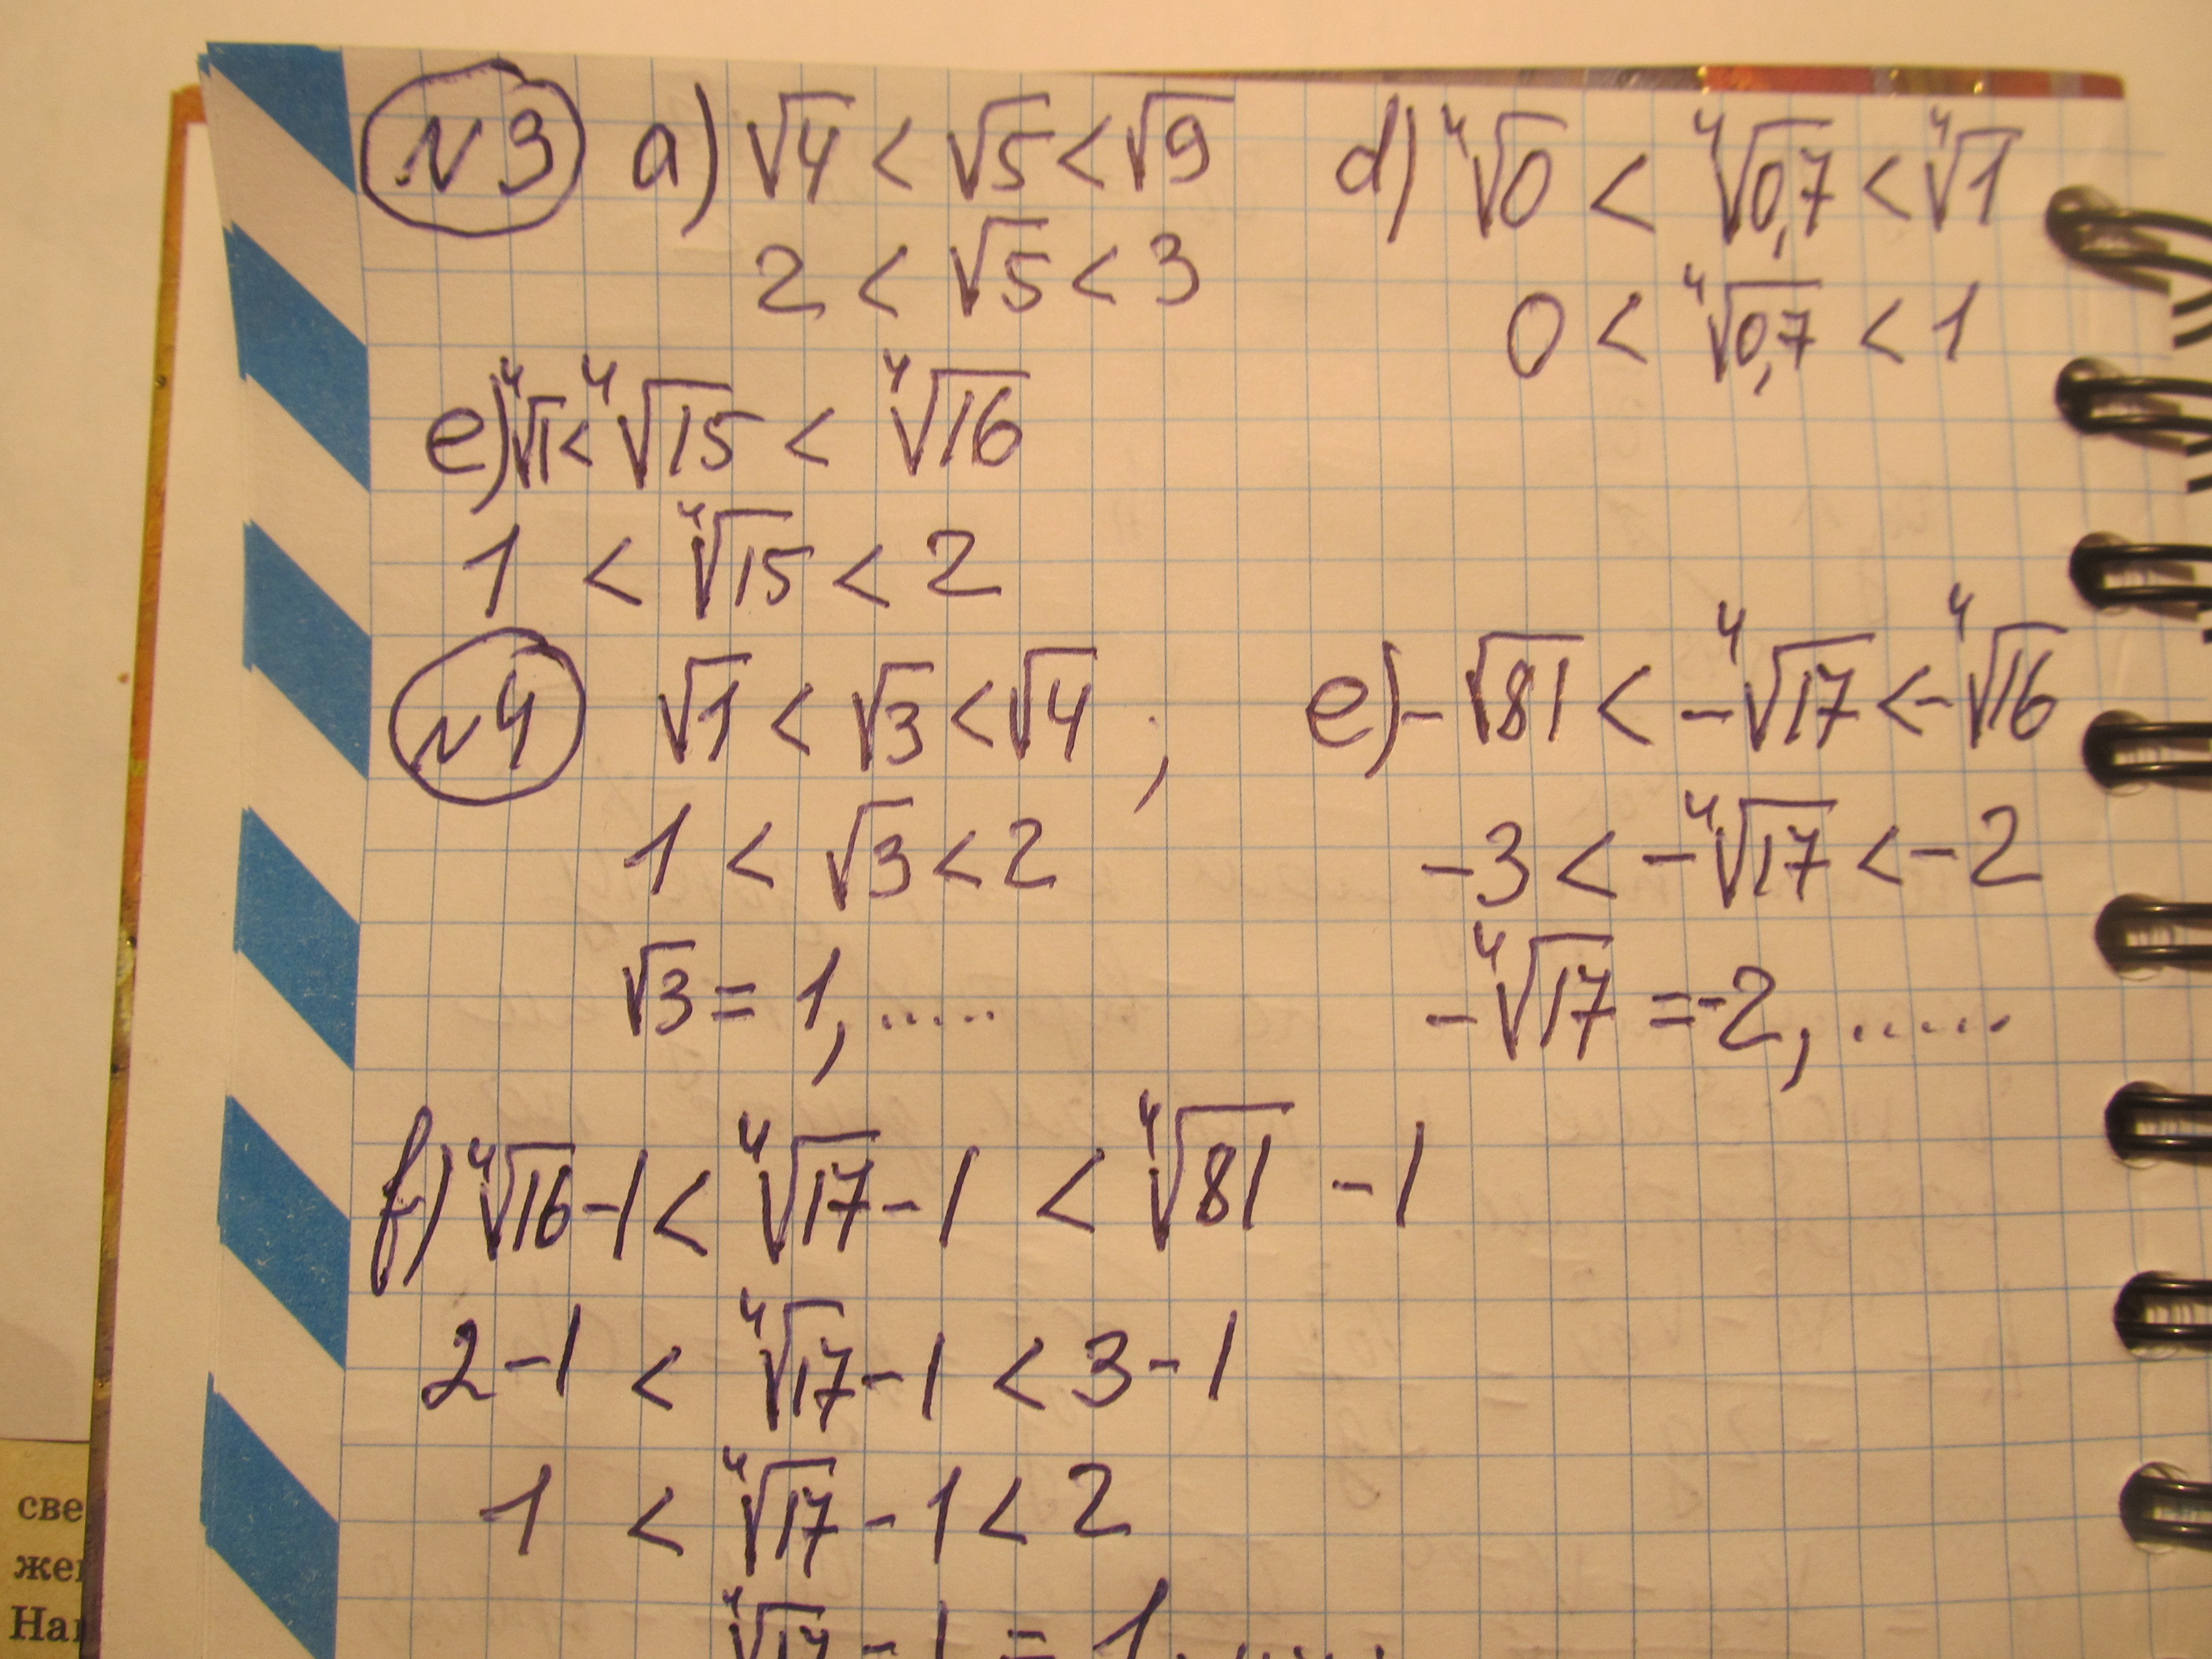 N3 a) √4 < √5 < √9
2 < √5 < 3
d) ⁴√0 < ⁴√0,7 < ⁴√1
0 < ⁴√0,7 < 1
e) ⁴√1 < ⁴√15 < ⁴√16
1 < ⁴√15 < 2
N4 √1 < √3 < √4 ;
1 < √3 < 2
√3 = 1, .....
e) -√81 < -⁴√17 < -⁴√16
-3 < -⁴√17 < -2
-⁴√17 = -2, .....
f) ⁴√16 - 1 < ⁴√17 - 1 < ⁴√81 - 1
2 - 1 < ⁴√17 - 1 < 3 - 1
1 < ⁴√17 - 1 < 2
⁴√17 - 1 = 1, .....
све
же
На